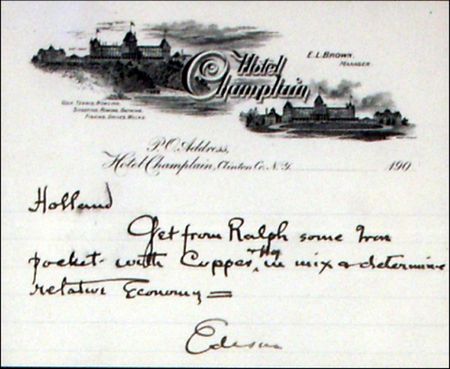 Hotel
Champlain
E.L. BROWN,
MANAGER.
GOLF, TENNIS, BOWLING,
FISHING, DRIVES, WALKS.
P.O. Address,
Hotel Champlain, Clinton Co. N.Y. 190
Holland
Get from Ralph some Iron
pocket with Copper +Hg in mix & determine
relative Economy =
Edison